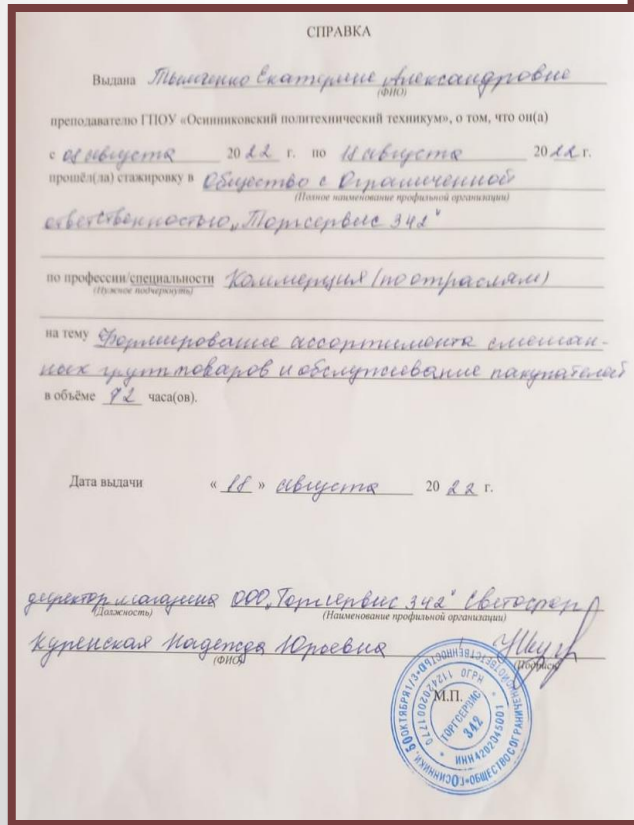 СПРАВКА
Выдана Тымченко Екатерине Александровне
(ФИО)
преподавателю ГПОУ «Осинниковский политехнический техникум», о том, что он(а)
с 08 августа 20 22 г. по 18 августа 20 22 г.
прошёл(ла) стажировку в Общество с Ограниченной
(Полное наименование профильной организации)
ответственностью „Торгсервис 342"
по профессии/специальности Коммерция (по отраслям)
(Нужное подчеркнуть)
на тему Формирование ассортимента смешан-
ных групп товаров и обслуживание покупателей
в объёме 72 часа(ов).
Дата выдачи « 18 » августа 20 22 г.
директор магазина ООО „Торгсервис 342" Светофор
(Должность) (Наименование профильной организации)
Куренская Надежда Юрьевна
(ФИО) (Подпись)
М.П.
ТОРГСЕРВИС
342